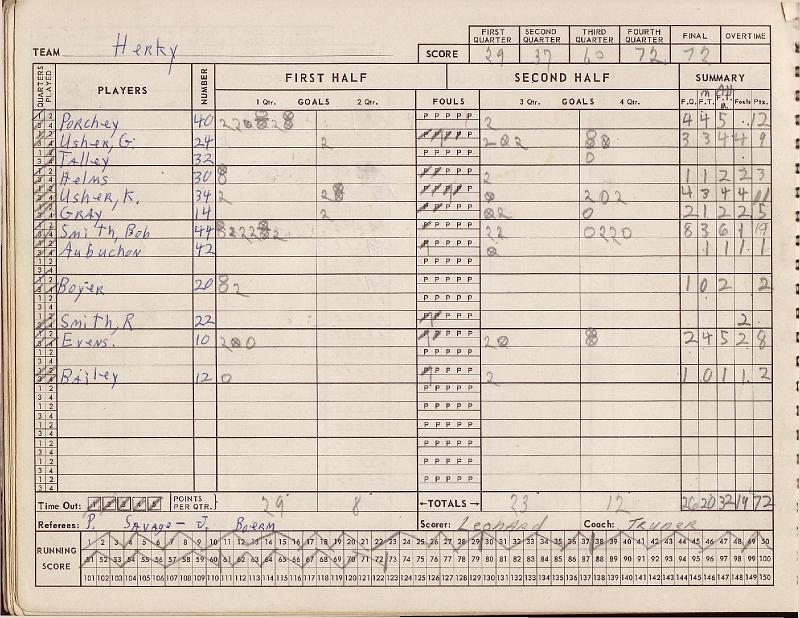 FIRST QUARTER SECOND QUARTER THIRD QUARTER FOURTH QUARTER FINAL OVERTIME
TEAM Herky SCORE 29 37 60 72 72
QUARTERS PLAYED PLAYERS NUMBER FIRST HALF SECOND HALF SUMMARY
1 Qtr. GOALS 2 Qtr. FOULS 3 Qtr. GOALS 4 Qtr. F.G. F.T. Fouls Pts.
Porchey 40 P P P P P 2 4 4 5 12
Usher, G. 24 2 P P P P P 3 3 4 4 9
Talley 32 P P P P P 0
Helms 30 P P P P P 2 1 1 2 2 3
Usher, K. 34 2 P P P P P 2 0 2 4 3 4 4 11
GRAY 14 2 P P P P P 0 2 1 2 2 5
Smith, Bob 44 P P P P P 2 2 0 2 2 0 8 3 6 1 19
Aubuchon 42 P P P P P 1 1 1 1
P P P P P
Boyer 20 8 2 P P P P P 1 0 2 2
P P P P P
Smith, R 22 P P P P P 2
Evens. 10 P P P P P 2 4 5 2 8
P P P P P
Bailey 12 0 P P P P P 2 1 0 1 1 2
P P P P P
P P P P P
P P P P P
P P P P P
P P P P P
P P P P P
Time Out: 1 2 3 4 5 POINTS PER QTR. 29 8 ←TOTALS→ 23 12 26 20 32 19 72
Referees: P. SAVAGE - J. BOERM Scorer: Leonard Coach: TRYNER
RUNNING SCORE
1 2 3 4 5 6 7 8 9 10 11 12 13 14 15 16 17 18 19 20 21 22 23 24 25 26 27 28 29 30 31 32 33 34 35 36 37 38 39 40 41 42 43 44 45 46 47 48 49 50
51 52 53 54 55 56 57 58 59 60 61 62 63 64 65 66 67 68 69 70 71 72 73 74 75 76 77 78 79 80 81 82 83 84 85 86 87 88 89 90 91 92 93 94 95 96 97 98 99 100
101 102 103 104 105 106 107 108 109 110 111 112 113 114 115 116 117 118 119 120 121 122 123 124 125 126 127 128 129 130 131 132 133 134 135 136 137 138 139 140 141 142 143 144 145 146 147 148 149 150